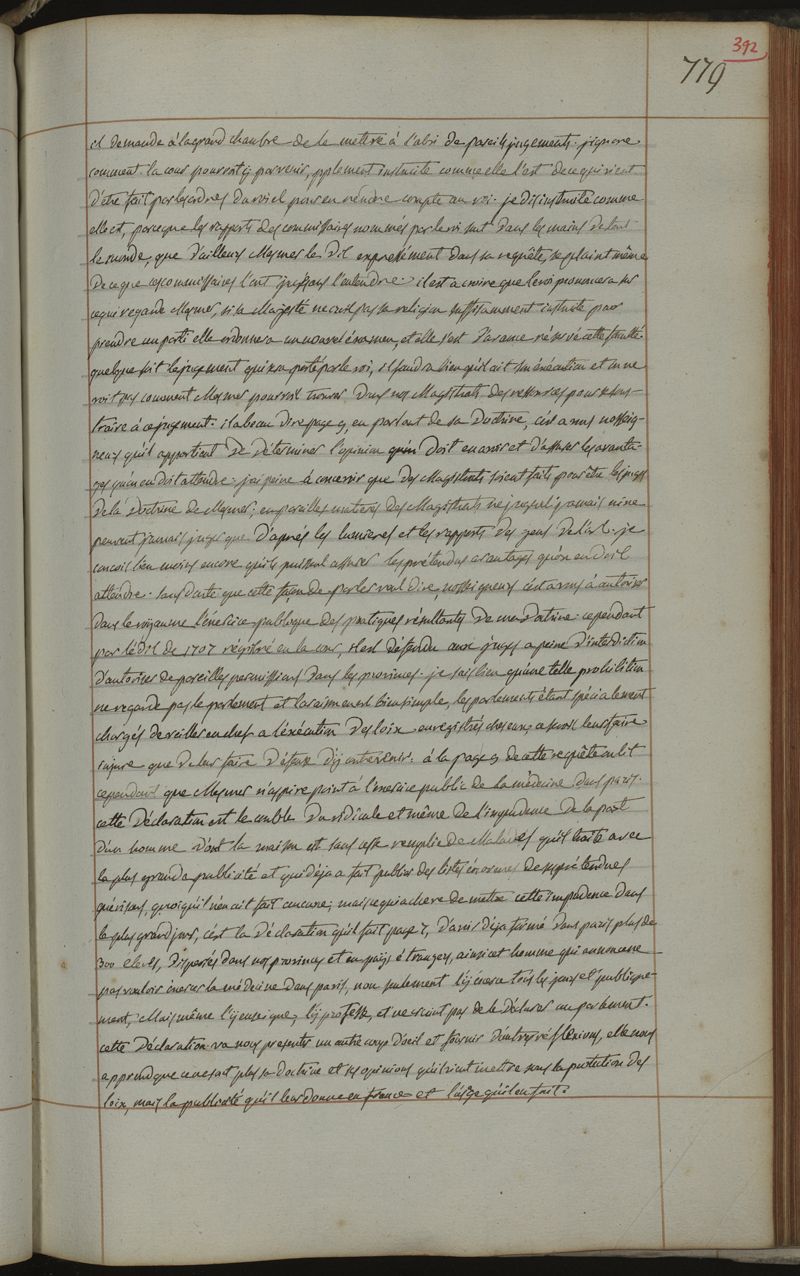 392
779
il demande à la grand chambre de le mettre à l'abri de pareils jugements. j'ignore
comment la cour pourroit y parvenir, pplement instruite comme elle l'est de ce qui vient
d'être fait par les ordres du roi et pour en rendre compte au roi. je dis instruite comme
elle est, parceque les rapports des commissaires nommés par le roi sont dans les mains de tout
le monde, que d'ailleurs Mesmer le dit expressément dans sa requête, se plaint même
de ce que ces commissaires l'ont jugé sans l'entendre. il est a croire que le roi prononcera sur
ce qui regarde Mesmer, si sa Majesté ne croit pas sa religion suffisamment instruite pour
prendre un parti elle ordonnera un nouvel éxamen, et elle s'est d'avance réservé cette faculté.
quelque soit le jugement qui sera porté par le roi, il faudra bien qu'il ait son éxécution et on ne
voit pas comment Mesmer pourroit trouver dans nos Magistrats des ressources pour se sous-
traire à ce jugement. il a beau dire page 9, en parlant de sa doctrine, c'est a nous nosseig-
neurs qu'il appartient de déterminer l'opinion qu'on doit en avoir et d'assurer les avanta-
ges qu'on en doit attendre. j'ai peine à concevoir que des Magistrats soient faits pour être les juges
de la doctrine de Mesmer; en pareilles matieres des Magistrats ne jugent jamais ni ne
peuvent jamais juger que d'après les lumieres et les rapports des gens de l'art. je
conçois bien moins encore qu'ils puissent assurer les prétendus avantages qu'on en doit
attendre. sans doute que cette façon de parler veut dire, nosseigneurs c'est a vous à autoriser
dans le royaume l'éxercice publique des pratiques résultantes de ma doctrine. cependant
par l'édit de 1707 régistré en la cour, il est défendu aux juges a peine d'interdiction
d'autoriser de pareilles permissions dans les provinces. je sais bien qu'une telle prohibition
ne regarde pas le parlement et la raison en est bien simple, les parlements étant spécialement
chargés de veiller en chef a l'éxécution des loix enregistrés chez eux, a seroit leur faire
injure que de leur faire défense d'y contrevenir. à la page 9 de cette requête on lit
cependant que Mesmer n'aspire point à l'éxercice public de la médecine dans paris.
cette déclaration est le comble du ridicule et même de l'impudence de la part
d'un homme dont la maison est sans cesse remplie de Malades qu'il traite avec
la plus grande publicité et qui déja a fait publier des listes énormes de ses prétendues
guérisons, quoiqu'il n'en ait fait aucune; mais ce qui acheve de mettre cette impudence dans
le plus grand jour, c'est la déclaration qu'il fait page 7, d'avoir déja formé dans paris plus de
300 eleves, dispersés dans nos provinces et en pays étrangers, ainsi cet homme qui annonce ne
pas vouloir éxercer la médecine dans paris, non seulement l'y éxerce tous les jours et publique-
ment, Mais même l'y enseigne, l'y professe, et ne craint pas de le déclarer au parlement.
cette déclaration va nous presenter un autre coup d'oeil et fournir d'autres réflexions, elle nous
apprend que ce ne sont plus sa doctrine et ses opinions qu'il vient mettre sous la protection des
loix, mais la publicité qu'il leur donne en france et l'usage qu'il en fait.